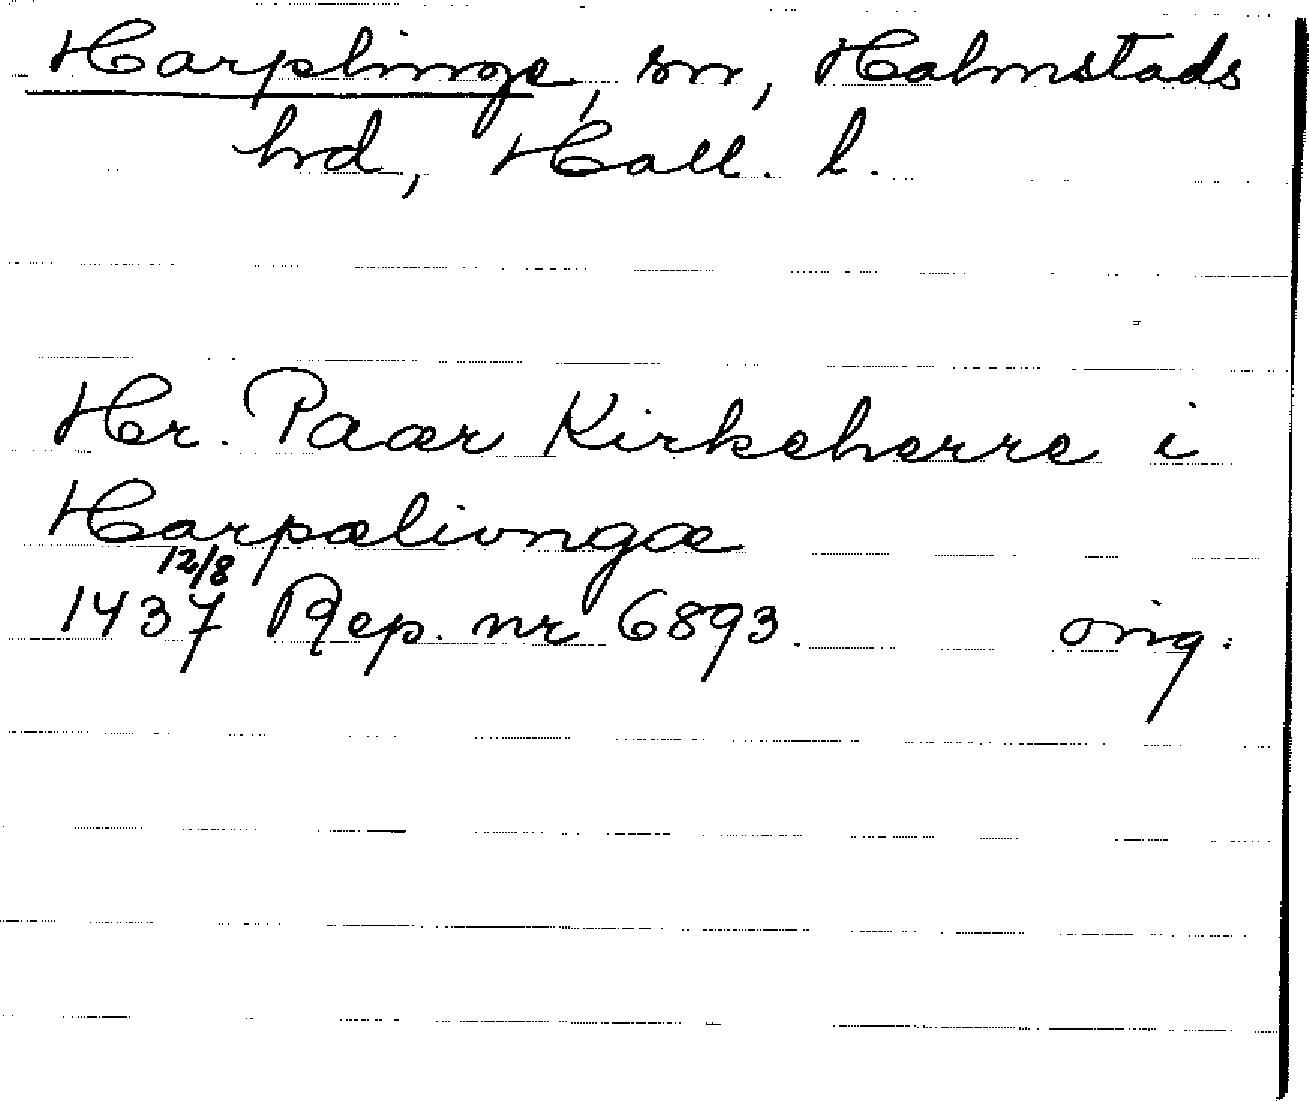 Harplinge, sn, Halmstads
hrd, Hall. l.
Hr. Paær Kirkeherre i
Harpæliongæ
12/8
1437 Rep. nr 6893. orig.